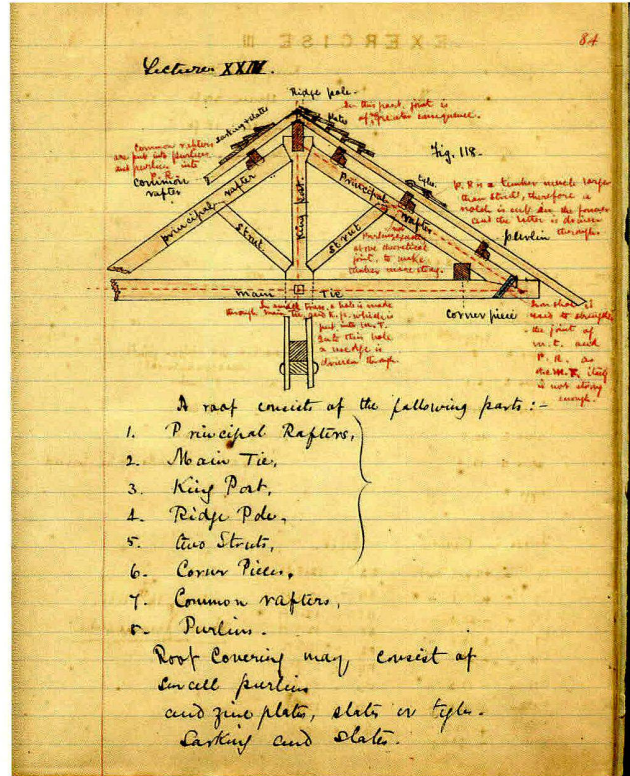 84
Lecture XXIV.
Ridge pole.
In this part, joint is
of greater consequence.
sarking & slates
slates
Fig. 118.
Common rafters
are put into purlins
and purlins into
P. R.
common
rafter
principal rafter
King Post
Principal rafter
tyles
P. R is a timber much larger
than strut, therefore a
notch is cut in the former
and the latter is driven
through
strut
strut
purlin
above theoretical
joint, to make
timber more strong.
main Tie
In small truss, a hole is made
through main tie, and K.p. which is
put into M.T.
Into this hole
a wedge is
driven through.
corner piece
Iron shoe is
used to strengthen
the joint of
m.t. and
P. R. as
the M.T. itself
is not strong
enough.
A roof consists of the following parts:-
1. Principal Rafters,
2. Main Tie,
3. King Post,
4. Ridge Pole,
5. two Struts,
6. Corner Pieces,
7. Common rafters,
8. Purlins.
Roof Covering may consist of
small purlins
and zinc plates, slates or tyles.
Sarking and slates.